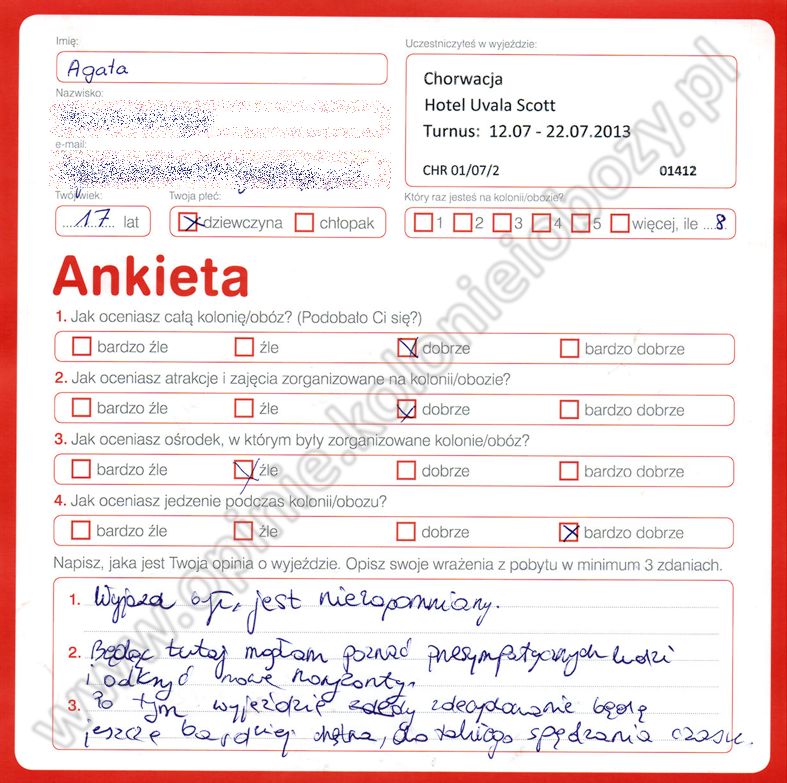 Imię:
Agata
Nazwisko:
e-mail:
Twój wiek:
17 lat
Twoja płeć:
dziewczyna chłopak
Uczestniczyłeś w wyjeździe:
Chorwacja
Hotel Uvala Scott
Turnus: 12.07 - 22.07.2013
CHR 01/07/2 01412
Który raz jesteś na kolonii/obozie?
1 2 3 4 5 więcej, ile ...8.
Ankieta
1. Jak oceniasz całą kolonię/obóz? (Podobało Ci się?)
bardzo źle źle dobrze bardzo dobrze
2. Jak oceniasz atrakcje i zajęcia zorganizowane na kolonii/obozie?
bardzo źle źle dobrze bardzo dobrze
3. Jak oceniasz ośrodek, w którym były zorganizowane kolonie/obóz?
bardzo źle źle dobrze bardzo dobrze
4. Jak oceniasz jedzenie podczas kolonii/obozu?
bardzo źle źle dobrze bardzo dobrze
Napisz, jaka jest Twoja opinia o wyjeździe. Opisz swoje wrażenia z pobytu w minimum 3 zdaniach.
1. Wyjazd jest niezapomniany.
2. Będąc tutaj mogłam poznać przesympatycznych ludzi
i odkryć nowe horyzonty.
3. Po tym wyjeździe zdecydowanie będę
jeszcze bardziej chętna, do takiego spędzania czasu.
www.opinie.kolonieiobozy.pl